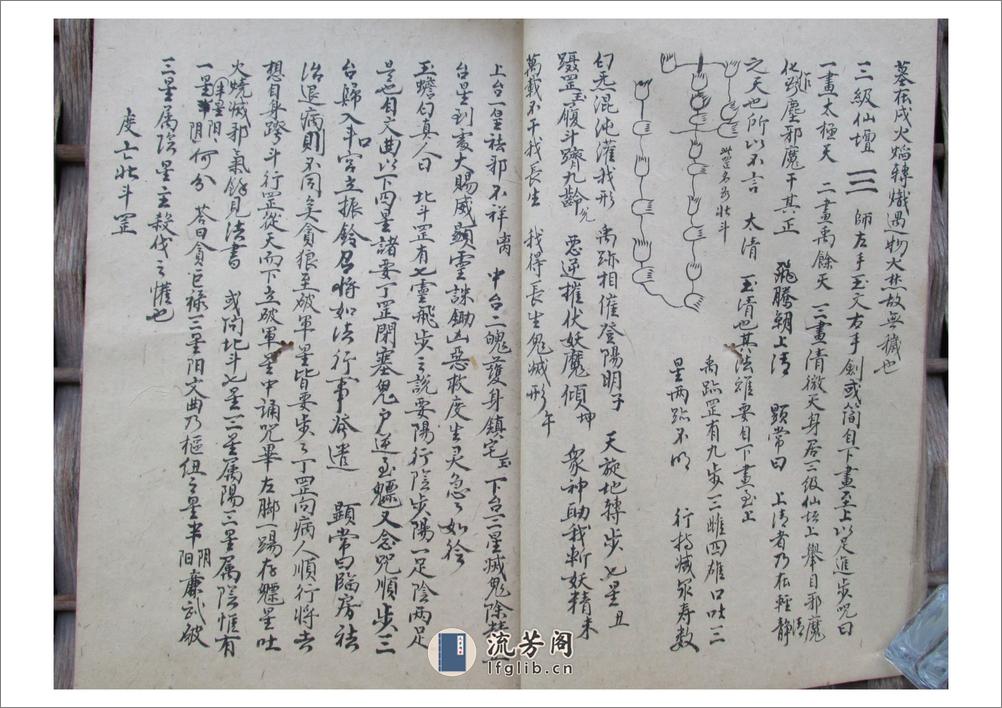 墓在戌火焰轉熾遇物火焚故無穢也
三級仙壇 三 師左手玉文右手劍或簡自下畫至上以足進步咒曰
一畫太極天 二畫禹餘天 三畫清微天身居三級仙坛上舉目邪魔
化作塵邪魔干其正 飛騰朝上清 顕常曰 上清者乃在輕清靜
之天也所以不言 太清 玉清也其法雖要自下畫至上
此罡名為北斗
禹跡罡有九步三雌四雄口吐三
星两跡不明 行持减家寿数
白炁混沌灌我形 禹跡相催登陽明子 天旋地轉步七星丑
躡罡履斗躋九齡 惡逆摧伏妖魔傾坤 衆神助我斬妖精未
萬載不干我長生 我得長生鬼滅形午
上台一星祛邪不祥离 中台二魄護身鎮宅 下台三星滅鬼除
台星到處大賜威顯靈誅鋤凶惡救度生灵急急如律
玉蟾白真人曰 北斗罡有七靈飛步之說要陽行陰步陽一足陰两足
是也自文曲以下四星諸要丁罡閉塞鬼户逆至魒又念咒順步三
台歸入斗口宫立振鈴召將如法行事發遣 顕常曰臨房祛
治退病則不同矣貪狼至破軍星皆要步之丁罡向病人順行將去
想自身跨斗行罡從天而下立破軍星中誦咒畢左脚一踢存魒星吐
火燒滅邪氣餘見法書 或问北斗七星三星属陽三星属陰惟有
一星半陽半阴何分 答曰貪巨祿三星阳文曲乃樞纽之星半阴半阳廉武破
三星属陰星主殺伐之權也
度亡北斗罡
流芳阁
lfglib.cn